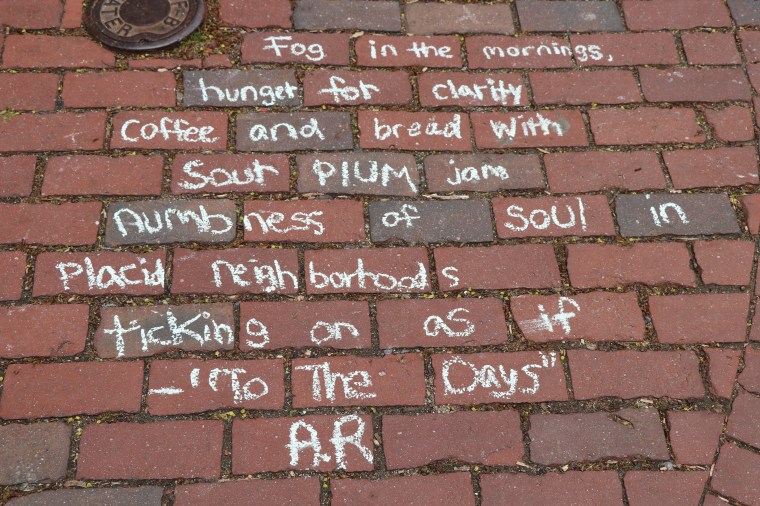 WATER
Fog in the mornings,
hunger for clarity
Coffee and bread with
Sour PlUM jam
Numbness of soul in
placid neighborhoods
ticking on as if
- "To The Days"
A.R